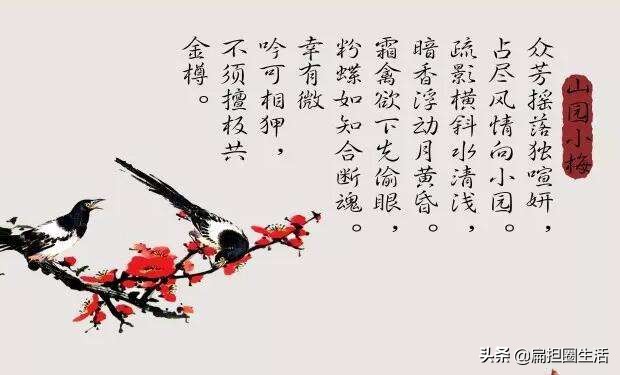 山园小梅
众芳摇落独喧妍，
占尽风情向小园。
疏影横斜水清浅，
暗香浮动月黄昏。
霜禽欲下先偷眼，
粉蝶如知合断魂。
幸有微
吟可相狎，
不须擅板共
金樽。
头条@扁担圈生活